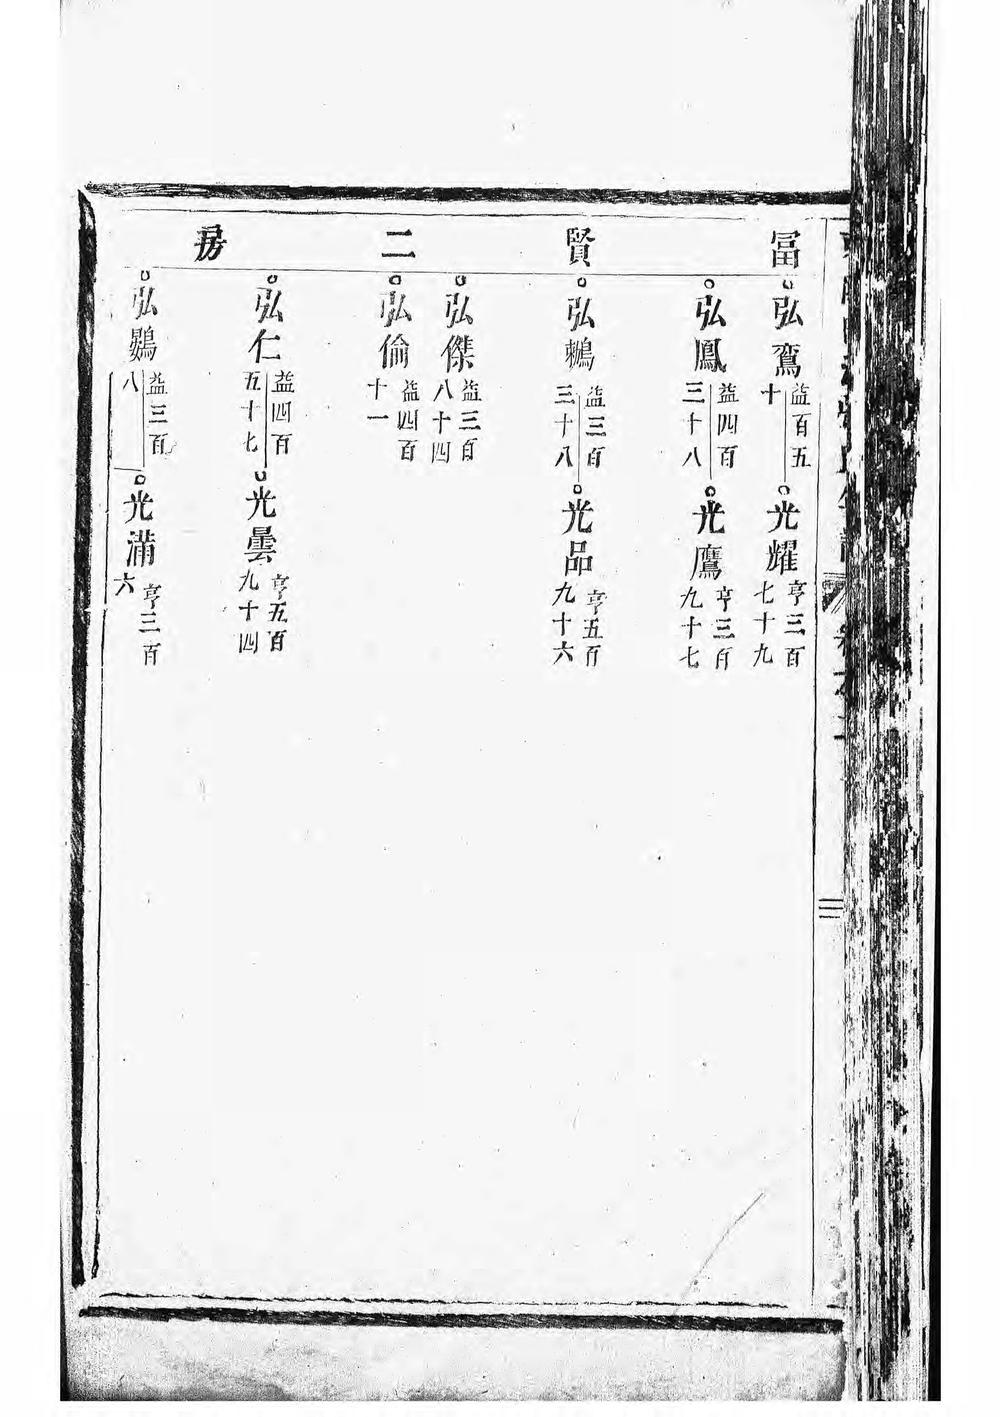 冨賢二房
弘鸞 益百五十
光耀 亨三百七十九
弘鳳 益四百三十八
光鷹 亨三百九十七
弘鶫 益三百三十八
光品 亨五百九十六
弘傑 益三百八十四
弘倫 益四百十一
弘仁 益四百五十七
光曇 亨五百九十四
弘鷃 益三百八
光滿 亨三百六
三